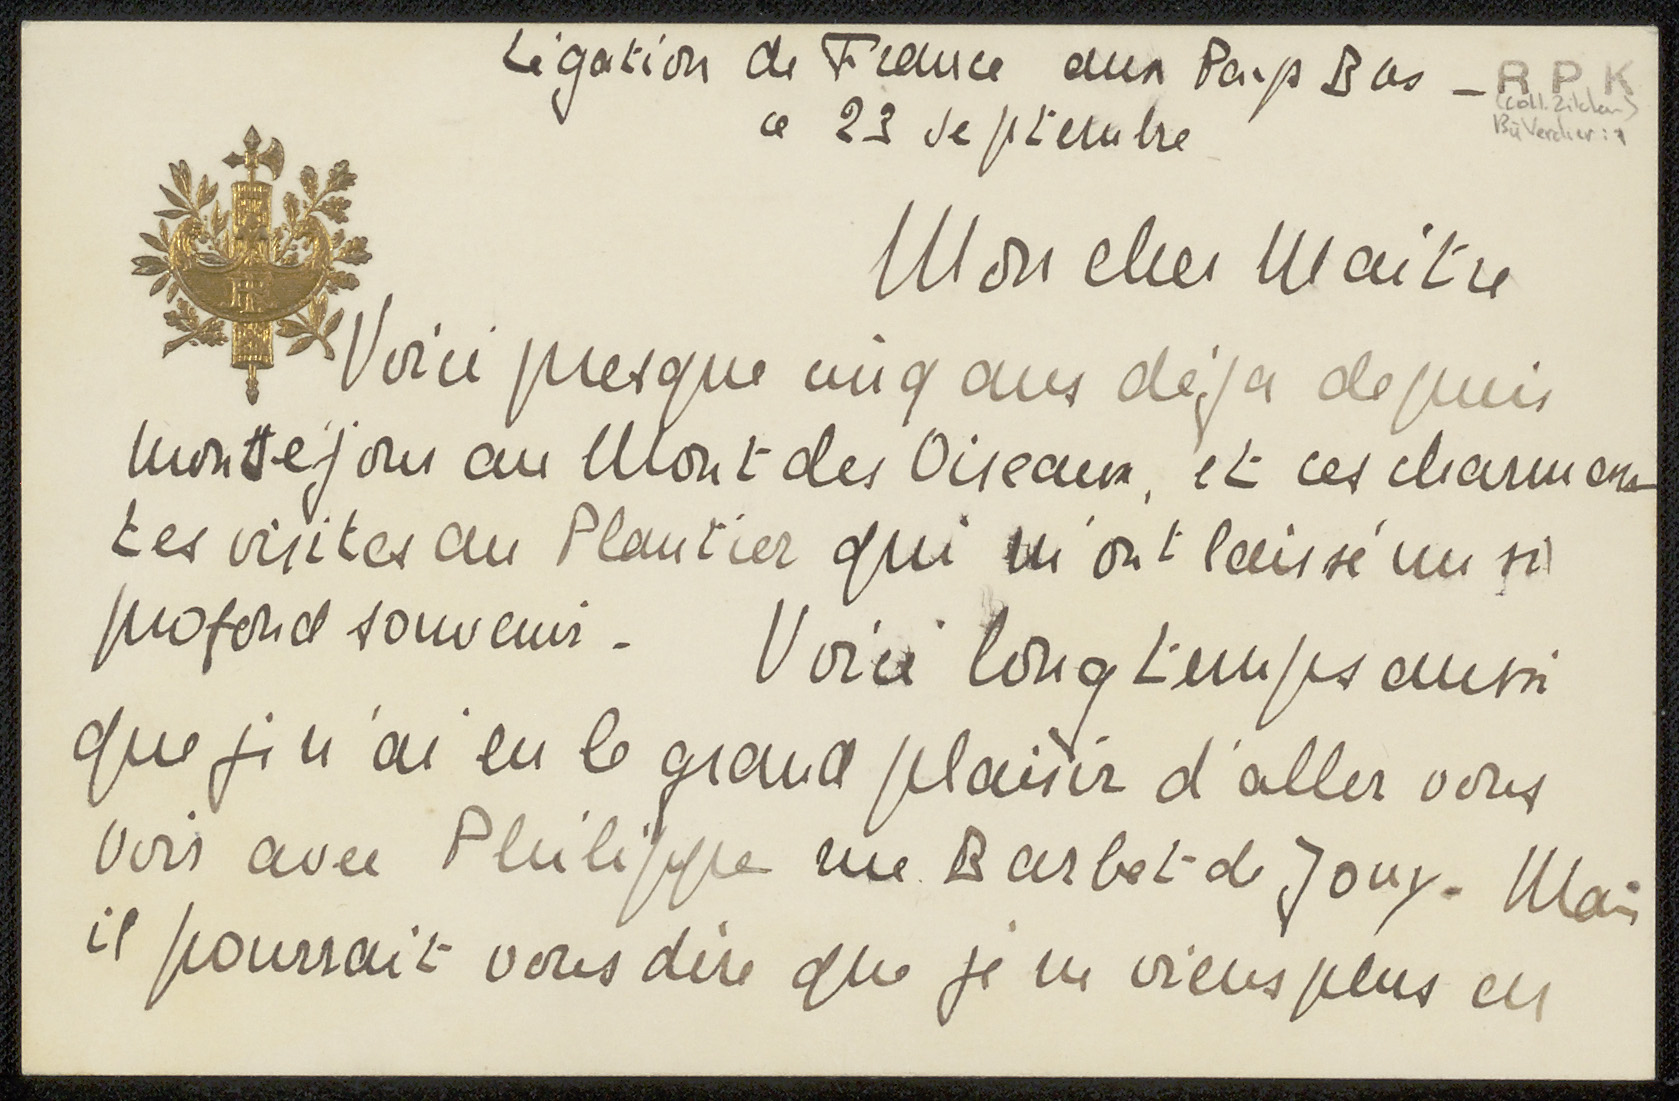 Légation de France aux Pays Bas –
ce 23 septembre
R P K
(coll. Zilcken)
Mon cher Maître
Voici presque cinq ans déjà depuis
mon séjour au Mont des Oiseaux, et ces charman
tes visites au Plantier qui m'ont laissé un si
profond souvenir –
Voici longtemps aussi
que je n'ai eu le grand plaisir d'aller vous
voir avec Philippe rue Barbet de Jouy. Mais
il pourrait vous dire que je ne viens plus en